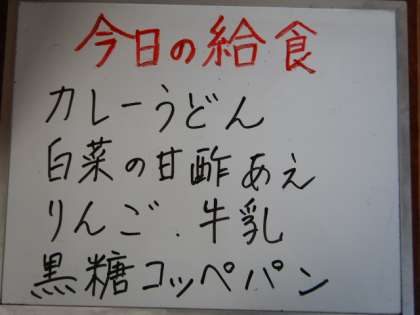 今日の給食
カレーうどん
白菜の甘酢あえ
りんご．牛乳
黒糖コッペパン